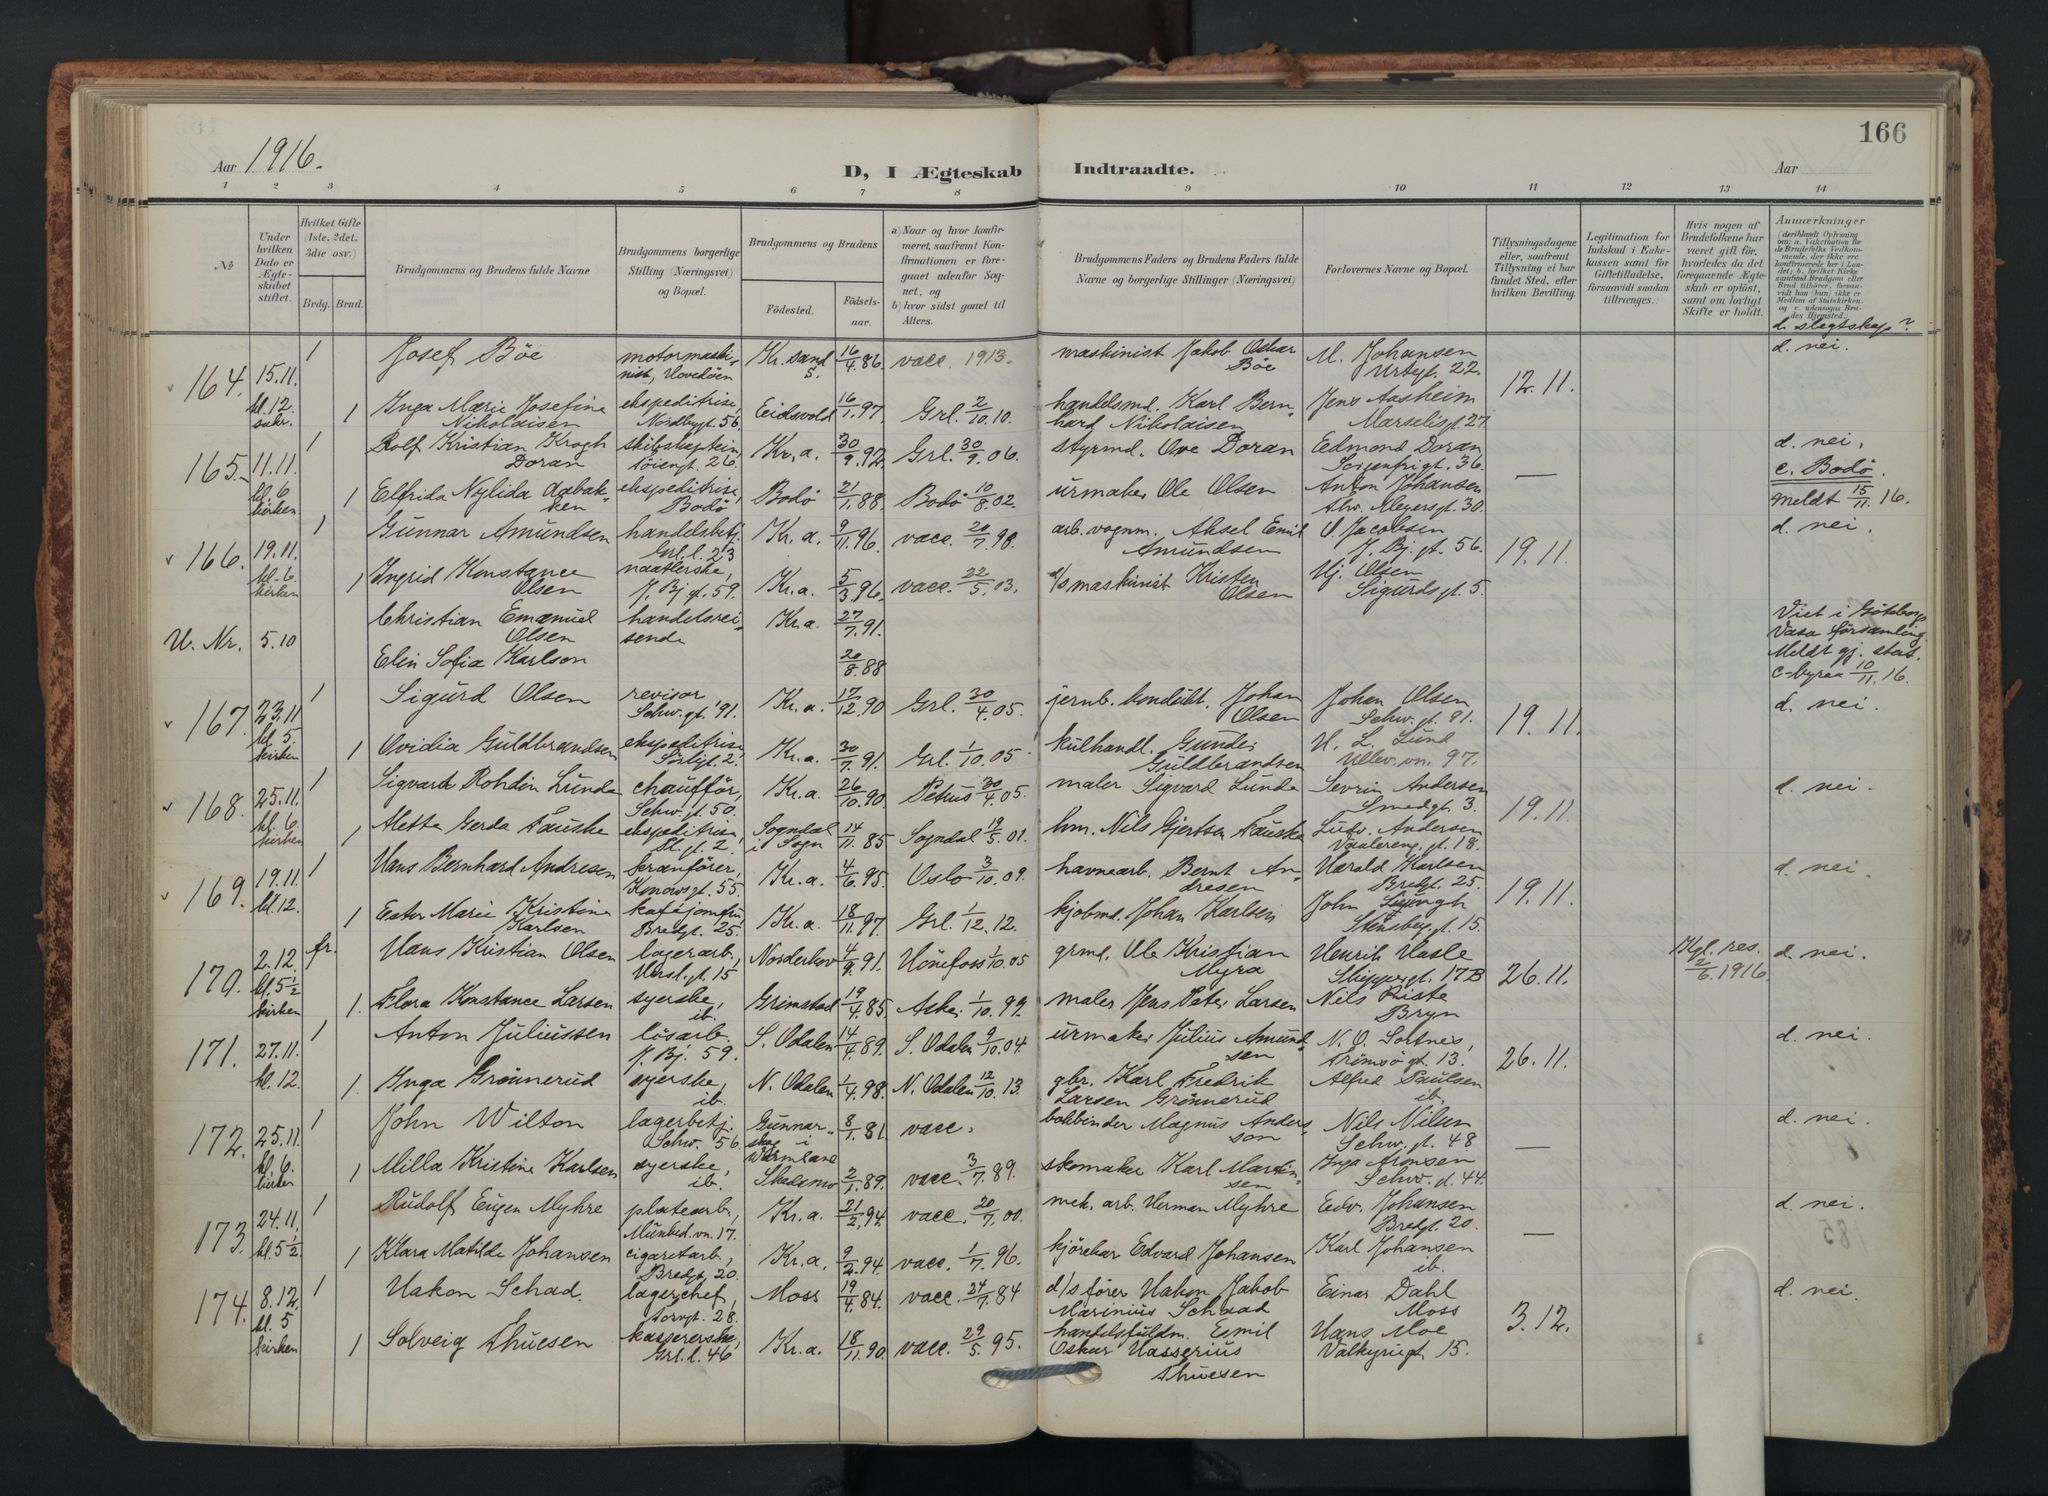 166
Aar 1916.
D, I Ægteskab Indtraadte.
Aar
1 2 3 4 5 6 7 8 9 10 11 12 13 14
No
Under hvilken Dato er Ægteskabet stiftet.
Hvilket Gifte (1ste, 2det, 3die osv.)
Brdg. Brud.
Brudgommens og Brudens fulde Navne
Brudgommens borgerlige Stilling (Næringsvei) og Bopæl.
Brudgommens og Brudens
Födested. Födselsaar.
a) Naar og hvor konfirmeret, saafremt Konfirmationen er foregaaet udenfor Sognet, og
b) hvor sidst gaaet til Alters.
Brudgommens Faders og Brudens Faders fulde Navne og borgerlige Stillinger (Næringsvei)
Forlovernes Navne og Bopæl.
Tillysningsdagene eller, saafremt Tillysning ei har fundet Sted, efter hvilken Bevilling.
Legitimation for Indskud i Enkekassen samt for Giftetilladelse, forsaavidt saadan tiltrænges.
Hvis nogen af Brudefolkene har været gift för, hvorledes da det foregaaende Ægteskab er oplöst, samt om lovligt Skifte er holdt.
Anmærkninger
d. slegtskap?
164. 15.11. kl. 12 sakr. 1 Josef Böe motormaskinist, Hovedöen Kr.sand S. 16/4 86 vacc. 1913. maskinist Jakob Oskar Böe M. Johansen Urtegt. 22. 12.11. d. nei.
1 Inga Marie Josefine Nikolaisen ekspeditrise Nordbygt. 56. Eidsvold 16/1 97. Grl. 2/10.10. handelsmd. Karl Bernhard Nikolaisen Jens Aasheim Marselisgt. 27.
165. 11.11. kl. 6 kirken 1 Rolf Kristian Krogh Doran skibskaptein 26. Kr.a. 30/9.92. Grl. 30/9.06. styrmd. Ove Doran Edmond Doran Sorgenfrigt. 36. — d. nei. c. Bodö.
1 Elfrida Nylida Aabakken ekspeditrise Bodö Bodö 21/1.88. Bodö 10/8.02. urmaker Ole Olsen Anton Johansen Thv. Meyersgt. 30. meldt 15/11.16.
166. 19.11. kl. 6. kirken 1 Gunnar Amundsen handelsbetj. Grl.l. 23 Kr.a. 9/11.96. vacc. 20/7.98. arb. vognm. Aksel Emil Amundsen O. Jacobsen J. Bj. gt. 56. 19.11. d. nei.
1 Ingrid Konstance Olsen naatlerske, J. Bj. gt. 59. Kr.a. 5/3.96. vacc. 22/5.03. d/s maskinist Kristen Olsen Hj. Olsen Sigurdsgt. 5.
U. Nr. 5.10 Christian Emanuel Olsen handelsreisende Kr.a. 27/7.91. Viet i Göteborgs Vasa församling
Elin Sofia Karlson 20/8.88 Meldt gj. stat. c-byraa 10/11.16.
167. 23.11 kl. 5. kirken 1 Sigurd Olsen revisor Schw.gt. 91. Kr.a. 17/12.90 Grl. 30/4.05. jernb. konduкt. Johan Olsen Johan Olsen Schw. gt. 91. 19.11. d. nei.
1 Ovidia Guldbrandsen ekspeditrise Sörligt. 2. Kr.a. 30/7.91. Grl. 1/10.05 kulhandl. Gunder Guldbrandsen H. L. Lund Ullev.vn. 97.
168. 25.11. kl. 6. kirken 1 Sigvard Rohdin Lunde chaufför, Schw.gt. 50. Kr.a. 26/10.90 Petrus 30/4.05. maler Sigvard Lunde Sevrin Andersen Smedgt. 3. 19.11. d. nei.
1 Aletta Gerda Fauske ekspeditrise St. gt. 2. Sogndal i Sogn 14/11.85 Sogndal 19/5.01. hm. Nils Gjertsen Fauske Ludv. Andersen Vaalereng. gt. 18.
169. 19.11. kl. 12. 1 Hans Bernhard Andresen kranförer, Konowsgt. 55. Kr.a. 4/6.95. Oslo 3/10.09. havnearb. Bernt Andresen Harald Karlsen Bredgt. 25. 19.11. d. nei.
1 Ester Marie Kristine Karlsen kaféjomfru Bredgt. 25. Kr.a. 18/11.97. Grl. 1/12.12. kjöbmd. Johan Karlsen John Ljungh Stensberg.gt. 15.
170. 2.12. kl. 5½ kirken fr. Hans Kristian Olsen lagerarb., Hersl.gt. 15 Norderhov 4/9.91. Hönefoss 1/10.05 grmd. Ole Kristian Myra Henrik Hasle Schweigaardsgt. 17B 26.11. Kgl. res. 2/6.1916. d. nei.
1. Flora Konstance Larsen syerske, ib. Grimstad 19/4.85. Asker 1/10.99. maler Jens Peter Larsen Nils Riste Bryn
171. 27.11. kl. 12. 1 Anton Juliussen lösarb. J. Bj. 59. S. Odalen 14/4.89. S. Odalen 9/10.04. urmaker Julius Amundsen N. O. Sortnes, Tromsö gt. 13. 26.11. d. nei.
1. Inga Grönnerud syerske, ib. N. Odalen 1/4.98. N. Odalen 12/10.13. gbr. Karl Fredrik Larsen Grönnerud Alfred Paulsen ib.
172. 25.11. kl. 6. kirken 1 John Wilton lagerbetj. Schw. 56. Gunnarskog i Wärmland 8/1.81. vacc. bokbinder Magnus Andersson Nils Nilsen Schw. gt. 48 — d. nei.
1 Milla Kristine Karlsen syerske, ib. Skedsmo 2/1.89. vacc. 3/7.89. skomaker Karl Martinsen Inga Aronsen Schw. gt. 44.
173. 24.11. kl. 5½ 1 Rudolf Eugen Myhre platearb., Munked.vn. 17. Kr.a. 21/2.94. vacc. 20/7.00. mek. arb. Herman Myhre Edv. Johansen Bredgt. 20. — d. nei.
1 Klara Matilde Johansen cigaretarb., Bredgt. 20. Kr.a. 9/2.94. vacc. 1/7.96. kjörekar Edvard Johansen Karl Johansen ib.
174. 8.12. kl. 5 kirken 1 Hakon Schad lagerchef, Torvgt. 28. Moss 19/4.84. vacc. 24/7.84 d/s förer Hakon Jakob Marinius Schaad Einar Dahl Moss 3.12. d. nei.
1 Solveig Thuesen kassererske, Grl.l. 46 Kr.a. 18/11.90. vacc. 29/5.95. handelsfuldm. Emil Oskar Hasserius Thuesen Hans Moe Valkyriegt 15.